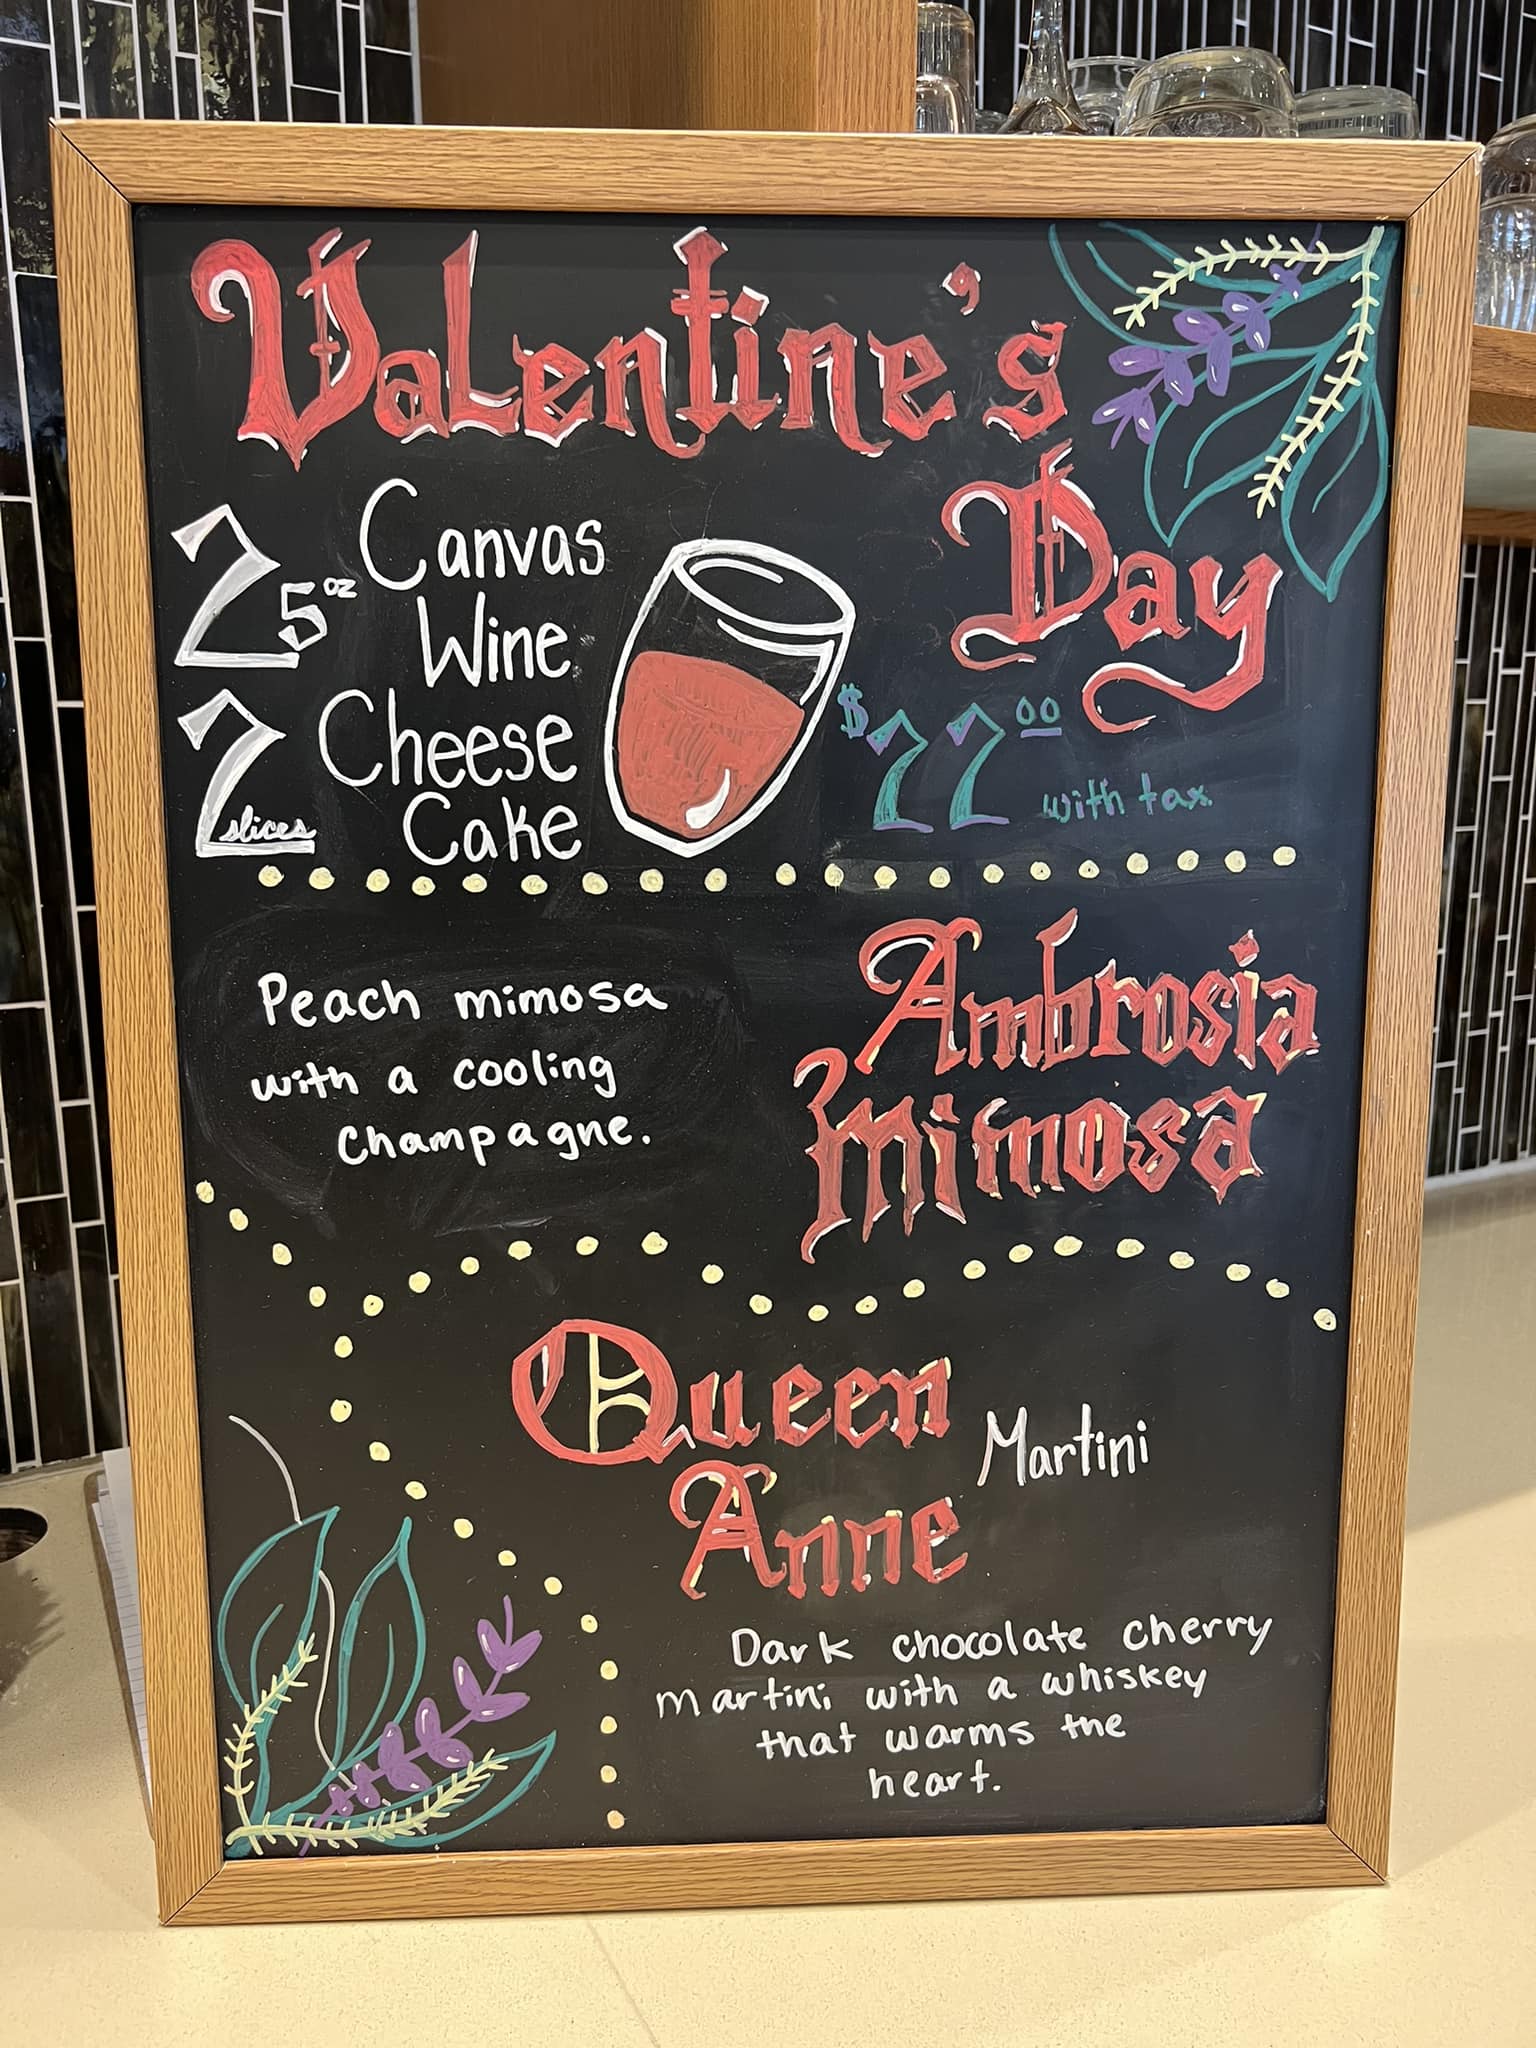 Valentine's
Day
2 5oz Canvas
Wine
2 slices Cheese
Cake
$22.00
with tax
Peach mimosa
with a cooling
champagne.
Ambrosia
Mimosa
Queen
Anne
Martini
Dark chocolate cherry
martini with a whiskey
that warms the
heart.